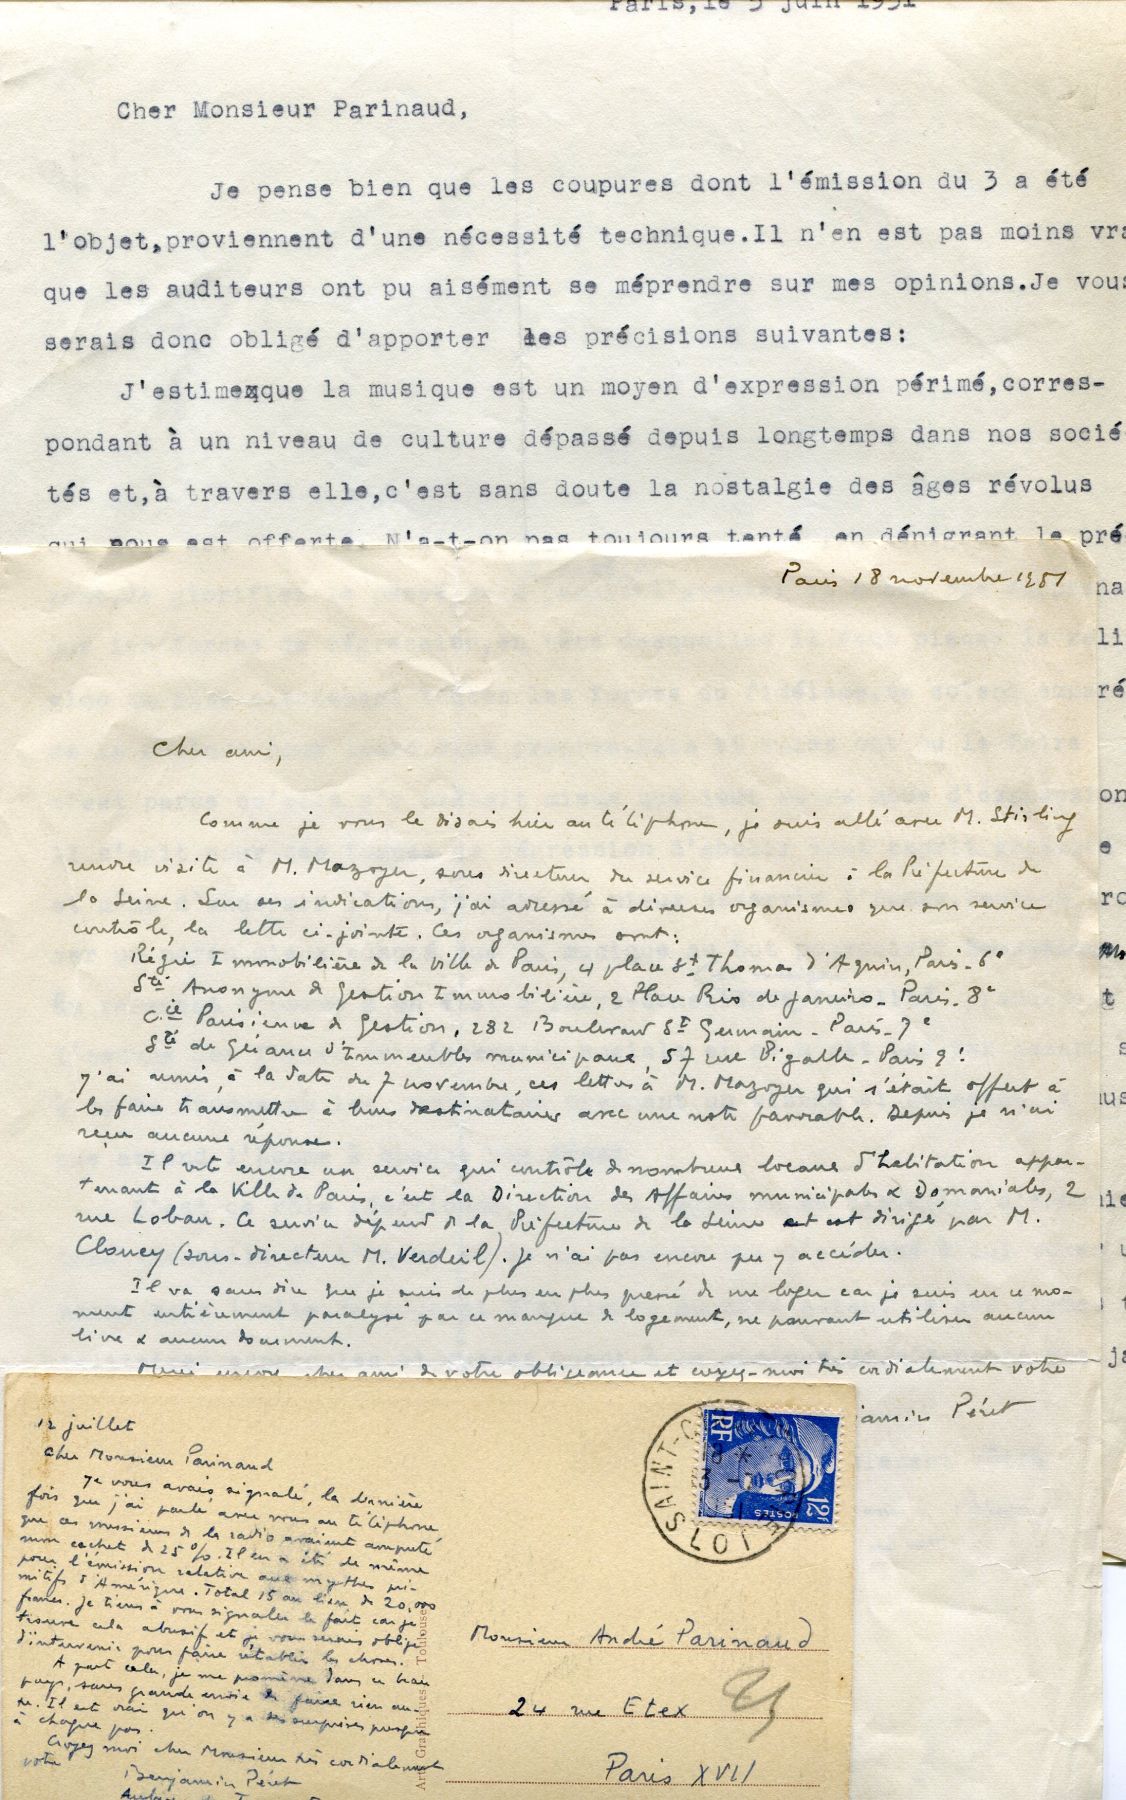 Paris, le 5 juin 1951
Cher Monsieur Parinaud,
Je pense bien que les coupures dont l'émission du 3 a été
l'objet,proviennent d'une nécessité technique.Il n'en est pas moins vra
que les auditeurs ont pu aisément se méprendre sur mes opinions.Je vous
serais donc obligé d'apporter les précisions suivantes:
J'estime que la musique est un moyen d'expression périmé,corres-
pondant à un niveau de culture dépassé depuis longtemps dans nos socié-
tés et,à travers elle,c'est sans doute la nostalgie des âges révolus
qui nous est offerte. N'a-t-on pas toujours tenté, en dénigrant le pré-
Paris 18 novembre 1951
Cher ami,
Comme je vous le disais hier au téléphone, je suis allé avec M. Stirling
rendre visite à M. Mazoyer, sous directeur du service financier à la Préfecture de
la Seine. Sur ses indications, j'ai adressé à diverses organismes que son service
contrôle, la lettre ci-jointe. Ces organismes sont:
Régie Immobilière de la Ville de Paris, 4 place St Thomas d'Aquin, Paris-6e
Sté Anonyme de Gestion Immobilière, 2 Place Rio de Janeiro - Paris-8e
Cie Parisienne de Gestion, 282 Boulevard St Germain - Paris-7e
Sté de Gérance d'Immeubles municipaux, 57 rue Pigalle - Paris 9e
J'ai remis, à la date du 7 novembre, ces lettres à M. Mazoyer qui s'était offert à
les faire transmettre à leurs destinataires avec une note favorable. Depuis je n'ai
reçu aucune réponse.
Il reste encore un service qui contrôle de nombreux locaux d'habitation appar-
tenant à la Ville de Paris, c'est la Direction des Affaires municipales & Domaniales, 2
rue Lobau. Ce service dépend de la Préfecture de la Seine et est dirigé par M.
Clancy (sous-directeur M. Verdeil). Je n'ai pas encore pu y accéder.
Il va sans dire que je suis de plus en plus pressé de me loger car je suis en ce mo-
ment entièrement paralysé par ce manque de logement, ne pouvant utiliser aucun
livre & aucun document.
Merci encore, cher ami, de votre obligeance et croyez-moi très cordialement votre
jamin Péret
12 juillet
Cher Monsieur Parinaud
Je vous avais signalé, la dernière
fois que j'ai parlé avec vous au téléphone
que ces messieurs de la radio avaient amputé
mon cachet de 25%. Il en a été de même
pour l'émission relative aux mythes pri-
mitifs d'Amérique. Total 15 au lieu de 20,000
francs. Je tiens à vous signaler le fait car je
trouve cela abusif et je vous serais obligé
d'intervenir pour faire rétablir les choses.
A part cela, je me promène dans ce beau
pays, sans grande envie de faire rien au-
tre. Il est vrai qu'on y a des surprises presque
à chaque pas.
Croyez moi cher Monsieur très cordialement
votre
Benjamin Péret
Arts Graphiques - Toulouse
SAINT-C
LOT
RF
12F
POSTES
Monsieur André Parinaud
24 rue Etex
Paris XVII